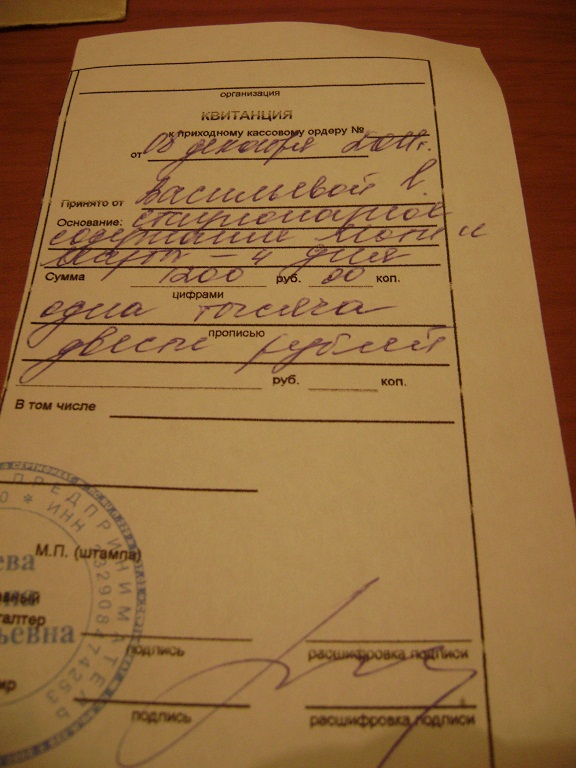 организация
КВИТАНЦИЯ
к приходному кассовому ордеру №
от 08 декабря 2011г.
Принято от Васильевой В.
Основание: стационарное
содержание Моти и
Марты - 4 дня
Сумма 1200 руб. 00 коп.
цифрами
одна тысяча
прописью
двести рублей
руб. коп.
В том числе
ПРЕДПРИНИМАТЕЛЬ
ИНН
М.П. (штампа)
ева
ьевна
подпись расшифровка подписи
подпись расшифровка подписи